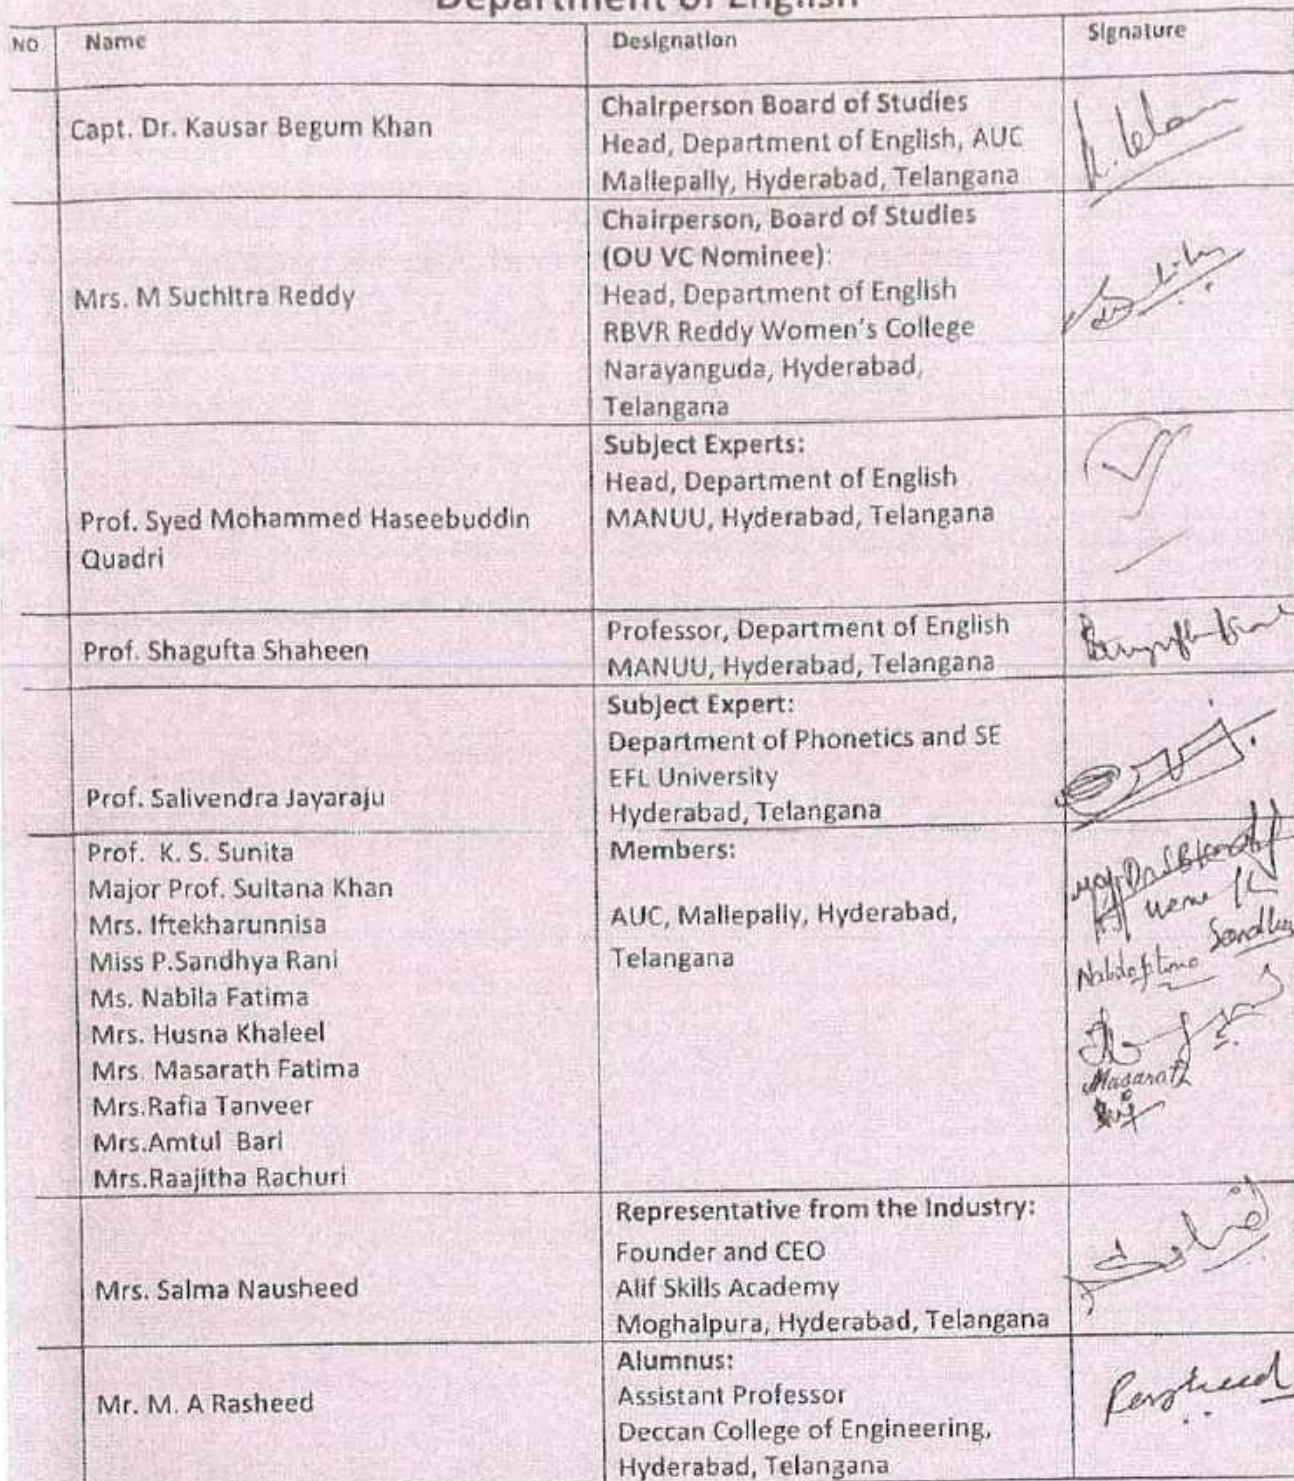 Department of English
NO Name Designation Signature
Capt. Dr. Kausar Begum Khan
Chairperson Board of Studies
Head, Department of English, AUC
Mallepally, Hyderabad, Telangana
Mrs. M Suchitra Reddy
Chairperson, Board of Studies
(OU VC Nominee):
Head, Department of English
RBVR Reddy Women's College
Narayanguda, Hyderabad,
Telangana
Prof. Syed Mohammed Haseebuddin
Quadri
Subject Experts:
Head, Department of English
MANUU, Hyderabad, Telangana
Prof. Shagufta Shaheen
Professor, Department of English
MANUU, Hyderabad, Telangana
Prof. Salivendra Jayaraju
Subject Expert:
Department of Phonetics and SE
EFL University
Hyderabad, Telangana
Prof. K. S. Sunita
Major Prof. Sultana Khan
Mrs. Iftekharunnisa
Miss P.Sandhya Rani
Ms. Nabila Fatima
Mrs. Husna Khaleel
Mrs. Masarath Fatima
Mrs.Rafia Tanveer
Mrs.Amtul Bari
Mrs.Raajitha Rachuri
Members:
AUC, Mallepally, Hyderabad,
Telangana
Masarath
Mrs. Salma Nausheed
Representative from the Industry:
Founder and CEO
Alif Skills Academy
Moghalpura, Hyderabad, Telangana
Mr. M. A Rasheed
Alumnus:
Assistant Professor
Deccan College of Engineering,
Hyderabad, Telangana
Rasheed